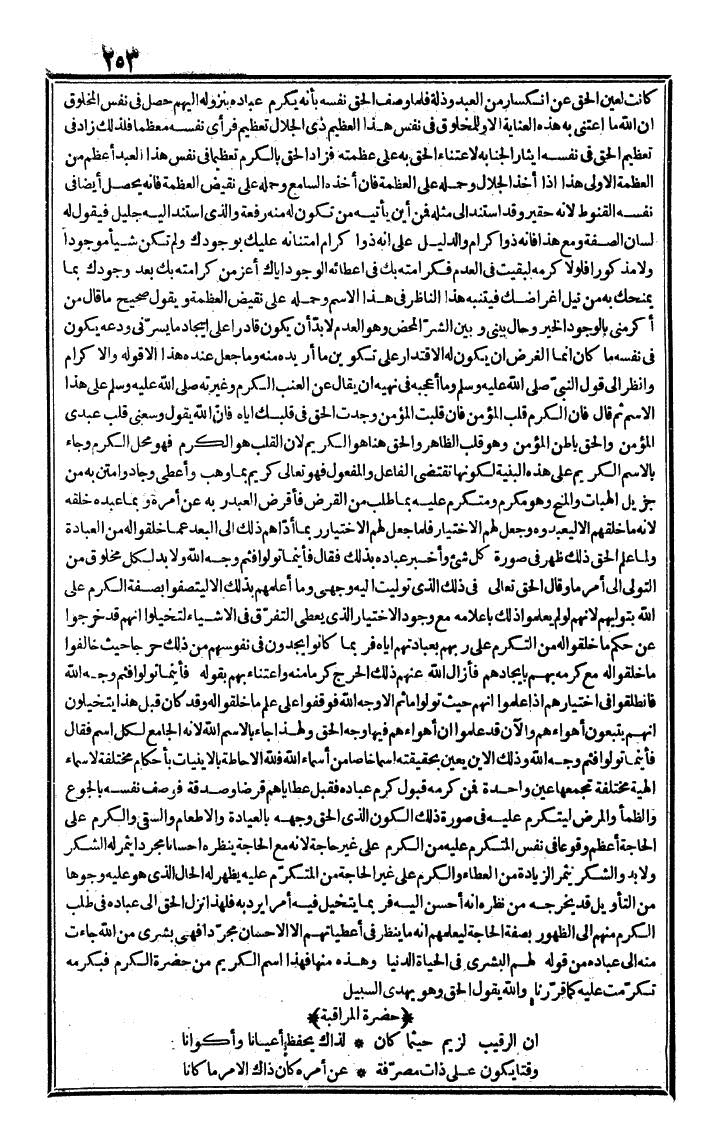 ٢٥٣
كانت لعين الحق عن انكسار من العبد وذلة فلما وصف الحق نفسه بأنه يكرم عباده بنزوله اليهم حصل فى نفس المخلوق
ان الله ما اعتنى به هذه العناية الا وللمخلوق فى نفس هذا العظيم ذى الجلال تعظيم فرأى نفسه معظما فلذلك زاد فى
تعظيم الحق فى نفسه ايثارا لجنابه لاعتناء الحق به على عظمته فزاد الحق بالكرم تعظيما فى نفس هذا العبد أعظم من
العظمة الاولى هذا اذا أخذ الجلال وحمله على العظمة فان أخذه السامع وحمله على نقيض العظمة فانه يحصل أيضا فى
نفسه القنوط لانه حقير وقد استند الى مثله فن أين يأتيه من تكون له منه رفعة والذى استند اليه جليل فيقول له
لسان الصفة ومع هذا فانه ذوا كرام والدليل على انه ذوا كرام امتنانه عليك بوجودك ولم تكن شيأ موجودا
ولا مذكورا فلولا كرمه لبقيت فى العدم فكرامته بك فى اعطائه الوجود اياك أعز من كرامته بك بعد وجودك بما
يمنحك به من نيل اغراضك فيتنبه هذا الناظر فى هذا الاسم وحمله على نقيض العظمة ويقول صحيح ما قال من
أكرمنى بالوجود الخير وحال بينى وبين الشر المحض وهو العدم لابدّ أن يكون قادرا على ايجاد ما يسرّنى ودعه يكون
فى نفسه ما كان انما الغرض ان يكون له الاقتدار على تكوين ما أريده منه وما جعل عنده هذا الا قوله والا كرام
وانظر الى قول النبىّ صلى الله عليه وسلم وما أعجبه فى نهيه ان يقال عن العنب الكرم وغيرته صلى الله عليه وسلم على هذا
الاسم ثم قال فان الكرم قلب المؤمن فان قلبت المؤمن وجدت الحق فى قلبك اياه فانّ الله يقول وسعنى قلب عبدى
المؤمن والحق باطن المؤمن وهو قلب الظاهر والحق هنا هو الكريم لان القلب هو الكرم فهو محل الكرم وجاء
بالاسم الكريم على هذه البنية لكونها تقتضى الفاعل والمفعول فهو تعالى كريم بما وهب وأعطى وجاد وامتن به من
جزيل الهبات والمنح وهو مكرم ومتكرم عليه بما طلب من القرض فأقرض العبد ربه عن أمره وبما عبده خلقه
لانه ما خلقهم الا ليعبدوه وجعل لهم الاختيار فلما جعل لهم الاختيار ربما أدّاهم ذلك الى البعد عما خلقوا له من العبادة
ولما علم الحق ذلك ظهر فى صورة كل شئ وأخبر عباده بذلك فقال فأينما تولوا فثم وجه الله ولا بد لكل مخلوق من
التولى الى أمر ما وقال الحق تعالى فى ذلك الذى توليت اليه وجهى وما أعلمهم بذلك الا ليتصفوا بصفة الكرم على
الله بتوليهم لانهم لو لم يعلموا ذلك باعلامه مع وجود الاختيار الذى يعطى التفرق فى الاشياء لتخيلوا انهم قد خرجوا
عن حكم ما خلقوا له من التكرم على ربهم بعبادتهم اياه فربما كانوا يجدون فى نفوسهم من ذلك حرجا حيث خالفوا
ما خلقوا له مع كرمه بهم بايجادهم فأزال الله عنهم ذلك الحرج كرما منه واعتناء بهم بقوله فأينما تولوا فثم وجه الله
فانطلقوا فى اختيارهم اذ اعلموا انهم حيث تولوا ما ثم الا وجه الله فوقفوا على علم ما خلقوا له وقد كان قبل هذا يتخيلون
انهم يتبعون أهواءهم والآن قد علموا ان أهواءهم فيها وجه الحق ولهذا جاء بالاسم الله لانه الجامع لكل اسم فقال
فأينما تولوا فثم وجه الله وذلك الاين يعين بحقيقته اسما خاصا من أسماء الله فلله الاحاطة بالاينيات بأحكام مختلفة لاسماء
الهية مختلفة تجمعها عين واحدة فن كرمه قبول كرم عباده فقبل عطاياهم قرضا وصدقة فوصف نفسه بالجوع
والظمأ والمرض ليتكرم عليه فى صورة ذلك الكون الذى الحق وجهه بالعيادة والاطعام والسقى والكرم على
الحاجة أعظم وقوعا فى نفس المتكرم عليه من الكرم على غير حاجة لانه مع الحاجة ينظره احسانا مجردا يثمر له الشكر
ولا بد والشكر يثمر الزيادة من العطاء والكرم على غير الحاجة من المتكرّم عليه يظهر له الحال الذى هو عليه وجوها
من التأويل قد يخرجه من نظره انه أحسن اليه فربما يتخيل فيه أمرا يرديه فلهذا انزل الحق الى عباده فى طلب
الكرم منهم الى الظهور بصفة الحاجة ليعلمهم انه ما ينظر فى أعطياتهم الا الاحسان مجرّدا فهى بشرى من الله جاءت
منه الى عباده من قوله لهم البشرى فى الحياة الدنيا وهذه منها فهذا اسم الكريم من حضرة الكرم فبكرمه
تكرّمت عليه كما قرّرنا والله يقول الحق وهو يهدى السبيل
﴿حضرة المراقبة﴾
ان الرقيب لزيم حيثما كان * لذاك يحفظ أعيانا وأكوانا
وقتا يكون على ذات مصرّفة * عن أمره كان ذاك الامر ما كانا